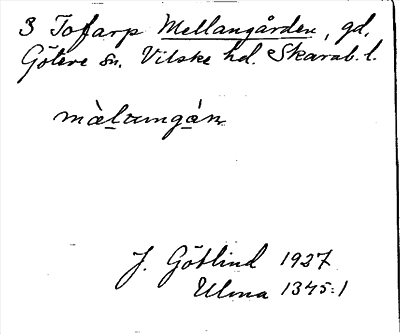 3 Tofarp Mellangården, gd.
Götene sn. Vilske hd. Skarab. l.
màlamgán
J. Götlind 1927
Ulma 1345:1